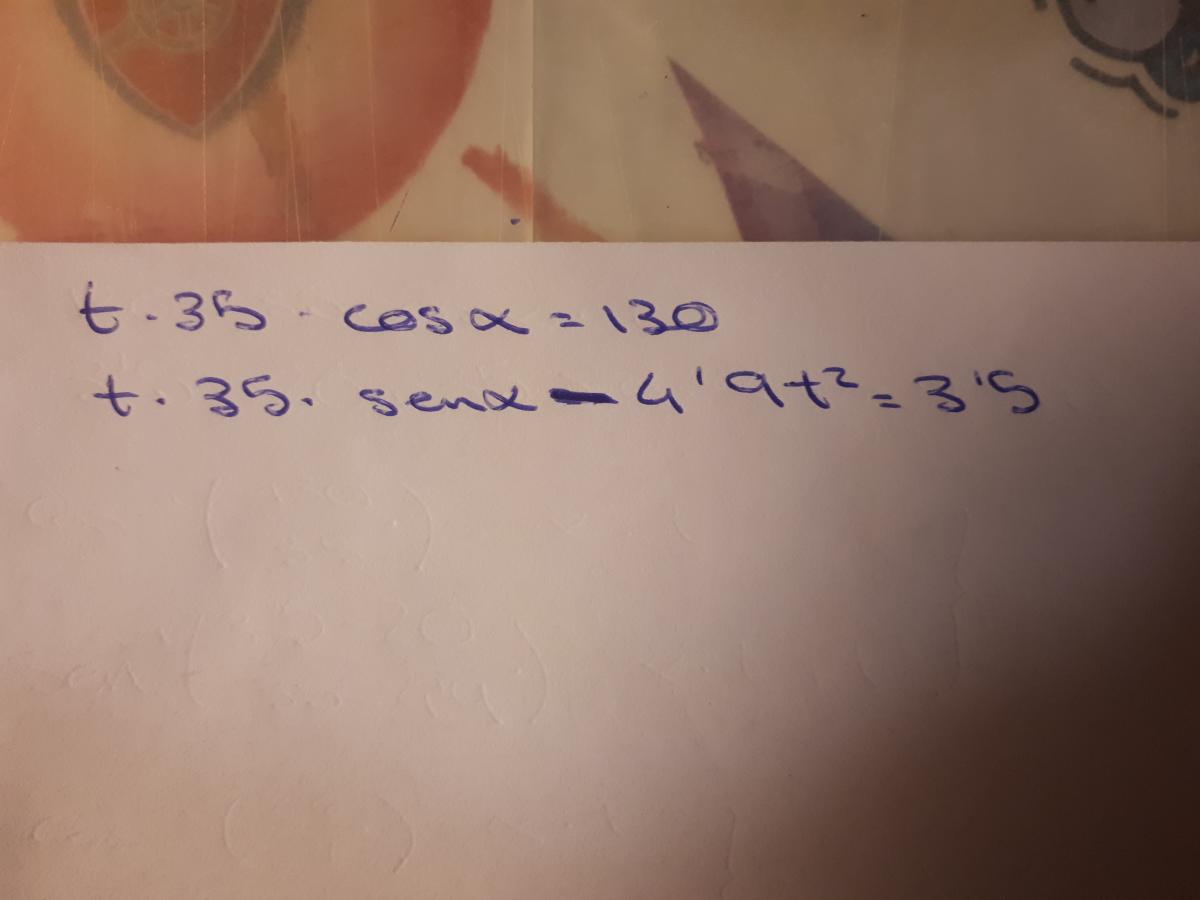 t · 35 · cos α = 130
t · 35 · sen α - 4'9t² = 3'5